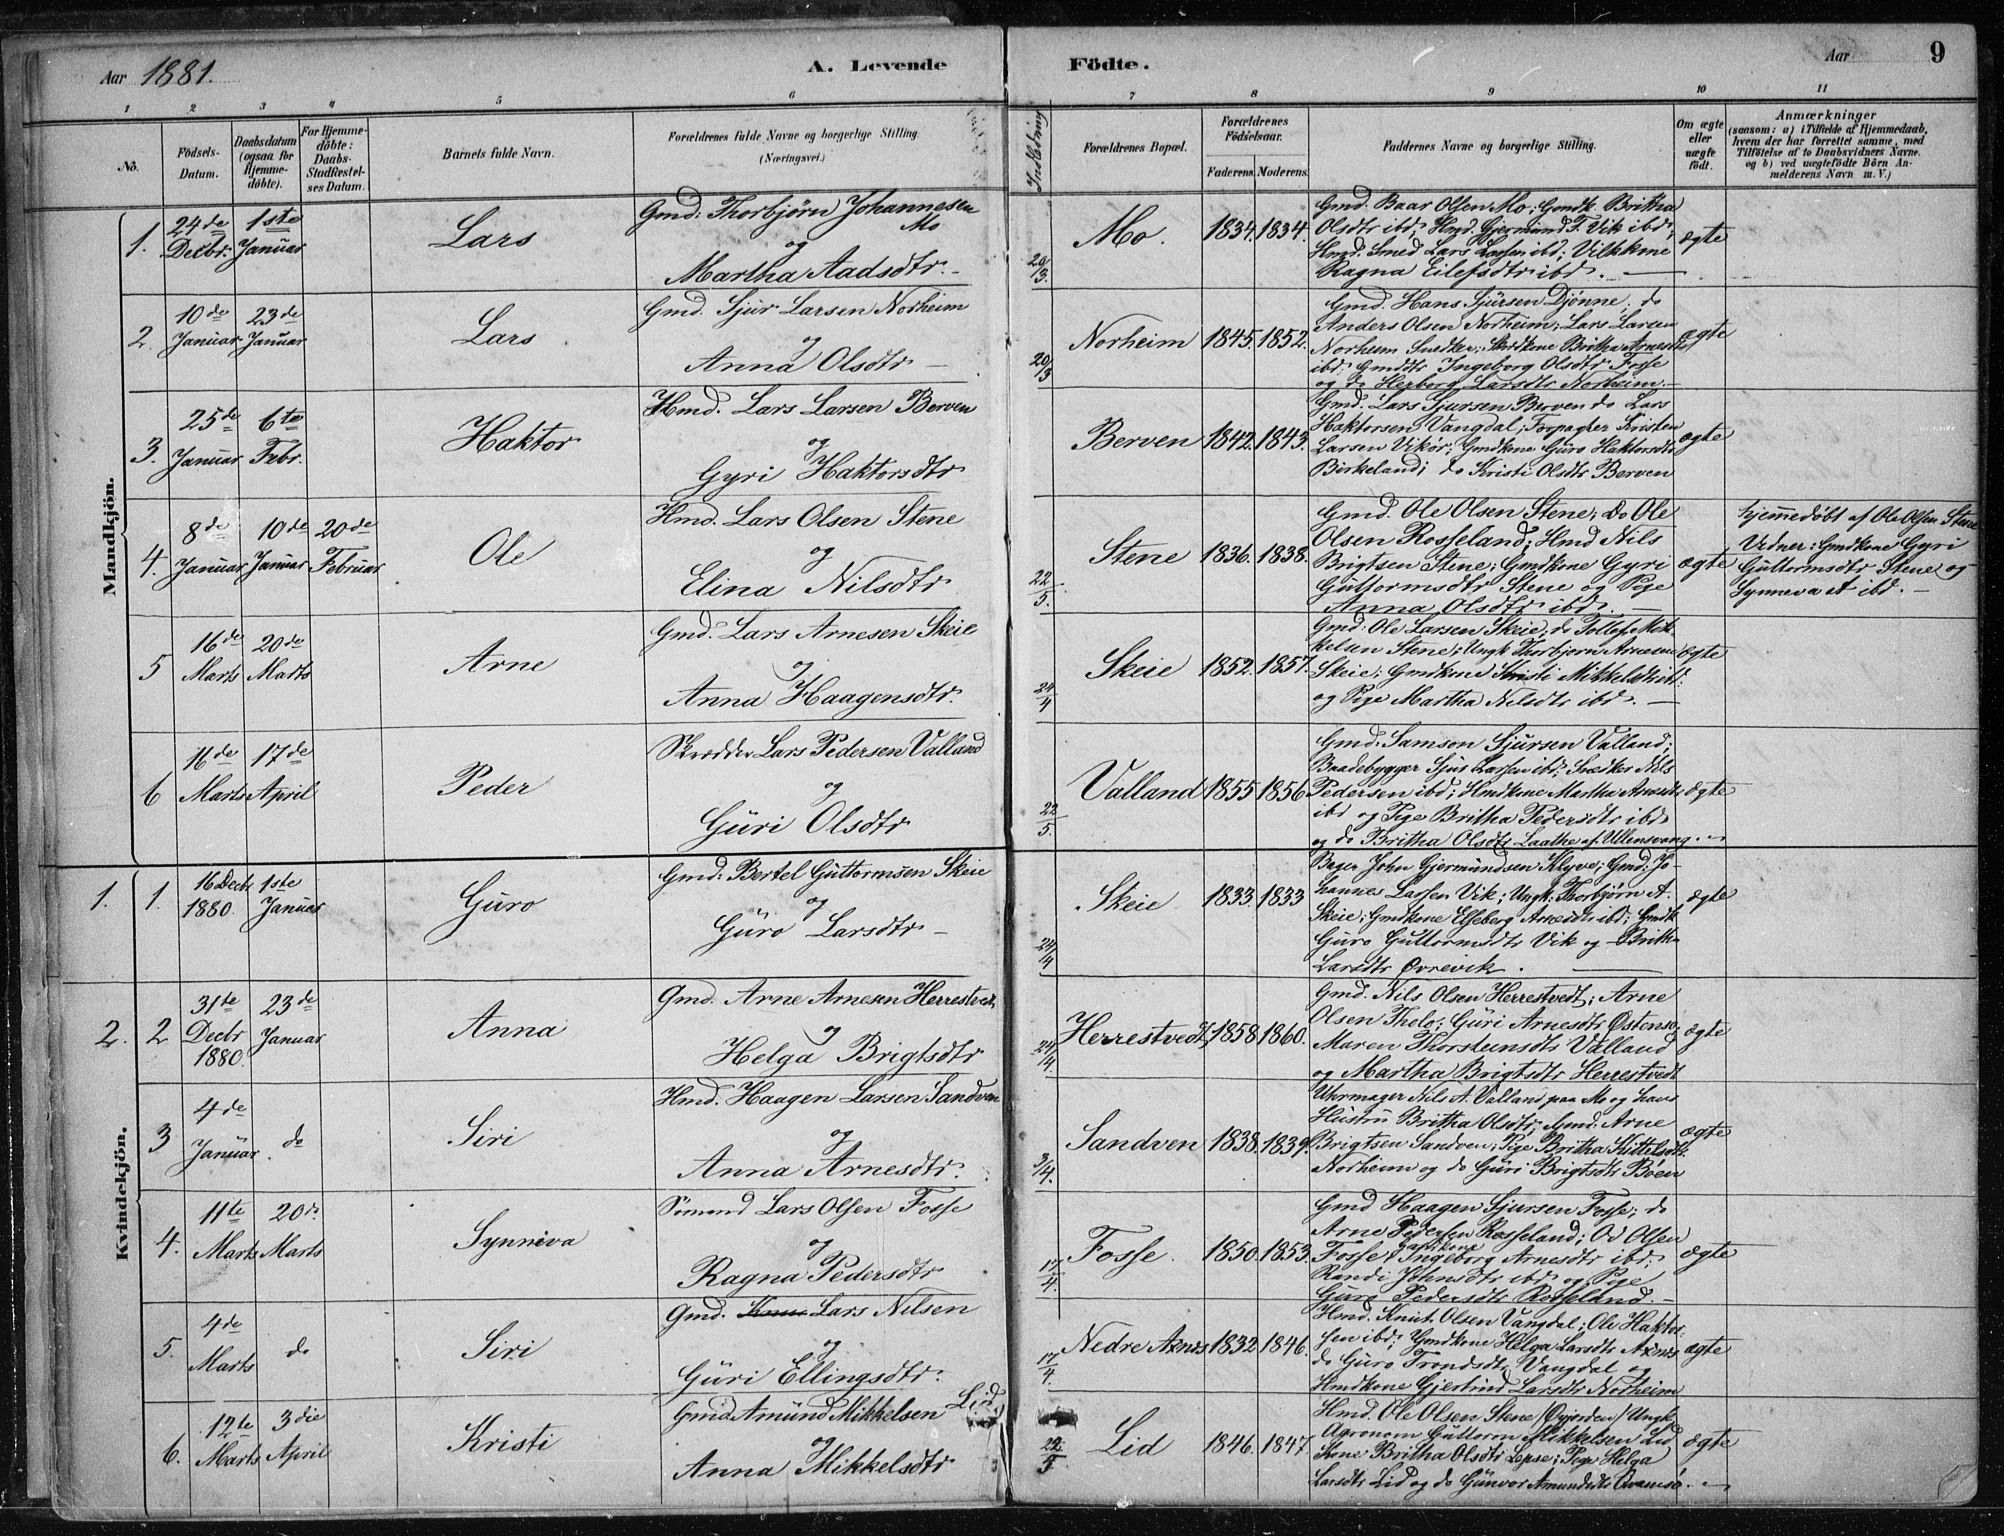 Aar 1881.
A. Levende
Födte.
Aar
9
1
2
3
4
5
6
7
8
9
10
11
No.
Födsels-
Datum.
Daabsdatum
(ogsaa for
Hjemme-
döbte).
For Hjemme-
döbte:
Daabs-
Stadfæstel-
ses Datum.
Barnets fulde Navn.
Forældrenes fulde Navne og borgerlige Stilling.
(Næringsvei.)
Forældrenes Bopæl.
Forældrenes
Födselsaar.
Faderens.
Moderens.
Faddernes Navne og borgerlige Stilling.
Om ægte
eller
uægte
födt.
Anmærkninger
(saasom: a) i Tilfælde af Hjemmedaab,
hvem der har forrettet samme, med
Tilföielse af to Daabsvidners Navne.
og b) ved uægtefödte Börn An-
melderens Navn m. V.)
Mandkjön.
1.
24de
Decbr.
1ste
Januar
Lars
Gmd: Thorbjörn Johannesen
Mo
og
Martha Aadsdtr.
20/3
Mo.
1834.
1834.
Gmd. Baar Olsen Mo; Gmdk. Britha
Olsdtr ibd; Hmd. Gjermund T. Vik ibd;
Hmd. Smed Lars Larsen ibd;
Ragna Eilefsdtr ibd.
ægte
2.
10de
Januar
23de
Januar
Lars
Gmd. Sjur Larsen Norheim
og
Anna Olsdtr
20/3
Norheim
1845.
1852.
Gmd. Hans Sjursen Djönne. do
Anders Olsen Norheim; Lars Larsen
Norheim Snedker; Britha Arnesdtr
ibd; Gmddtr Ingeborg Olsdtr Fosse
og do Herborg Larsdtr Norheim.
ægte
3.
25de
Januar
6te
Febr.
Haktor
Hmd. Lars Larsen Berven
og
Gyri Haktorsdtr
Berven
1842.
1843.
Gmd. Lars Sjursen Berven do Lars
Haktorsen Vangdal; Forpagter Kristen
Larsen Vikör; Gmdkone Guro Haktorsdtr
Birkeland; do Kristi Olsdtr Berven
ægte
4.
8de
Januar
10de
Januar
20de
Februar
Ole
Hmd. Lars Olsen Stene
og
Elina Nilsdtr
22/5.
Stene
1836.
1838.
Gmd. Ole Olsen Stene; Do Ole
Olsen Rosseland; Hmd Nils
Brigtsen Stene; Gmdkone Gyri
Guttormsdtr Stene og Pige
Anna Olsdtr ibd.
ægte
hjemmedöbt af Ole Olsen Stene
Vidner: Gmdkone Gyri
Guttormsdtr Stene og
Synneva A ibd.
5
16de
Marts
20de
Marts
Arne
Gmd. Lars Arnesen Skeie
og
Anna Haagensdtr.
24/4
Skeie
1852.
1857.
Gmd: Ole Larsen Skeie; do Tollef Mik-
kelsen Stene; Ungk Thorbjörn Arnesen
Skeie; Gmdkone Kristi Mikkelsdtr ibd.
og Pige Martha Nilsdtr ibd.
ægte
6
16de
Marts
17de
April
Peder
Skrædder Lars Pedersen Valland
og
Guri Olsdtr
22/5.
Valland
1855
1856
Gmd. Samson Sjursen Valland;
Baadebygger Sjur Larsen ibd; Snedker Nils
Pedersen ibd; Hmdkone Martha Arnesdtr
ibd og Pige Britha Pedersdtr ibd
og do Britha Olsdtr Laathe af Ullensvang.
ægte
Kvindekjön.
1.
1.
16 Decbr
1880.
1ste
Januar
Guro
Gmd: Bertel Guttormsen Skeie
og
Guro Larsdtr
24/4
Skeie
1833.
1833
John Gjermundsen Klyve; Gmd: Jo-
hannes Larsen Vik; Ungk: Thorbjörn A.
Skeie; Gmdkone Elseberg Arnesdtr ibd; Gmdk
Guro Guttormsdtr Vik og Britha
Larsdtr Övrevik.
ægte
2.
2
31te
Decbr
1880.
23de
Januar
Anna
Gmd. Arne Arnesen Herrestvedt
og
Helga Brigtsdtr
24/4.
Herrestvedt
1858
1860.
Gmd. Nils Olsen Herrestvedt; Arne
Olsen Tholo; Guri Arnesdtr Östensö
Maren Thorsteinsdtr Valland
og Martha Brigtsdtr Herrestvedt
ægte
3
4de
Januar
do
Siri
Hmd. Haagen Larsen Sandven
og
Anna Arnesdtr.
3/4.
Sandven
1838.
1839.
Uhrmager Nils A. Valland paa Mo og hans
Hustru Britha Olsdtr; Gmd. Arne
Brigtsen Sandven; Pige Britha Kittelsdtr
Norheim og do Guri Brigtsdtr Böen
ægte
4.
11te
Marts
20de
Marts
Synneva
Sömand Lars Olsen Fosse
og
Ragna Pedersdtr
17/4.
Fosse.
1850.
1853.
Gmd Haagen Sjursen Fosse; do
Arne Pedersen Rosseland; Od Olsen
Fosse; Ingeborg Arnesdtr ibd;
Randi Johnsdtr ibd og Pige
Guro Pedersdtr Rosseland.
ægte
5.
4de
Marts
do
Siri
Gmd. Lars Nilsen
og
Guri Ellingsdtr.
17/4.
Nedre Axnes
1832
1846.
Hmd. Knut Olsen Vangdal; Ole Haktor-
sen ibd; Gmdkone Helga Larsdtr Axnes
do Guro Trondsdtr Vangdal og
Hmdkone Gjertrud Larsdtr Norheim
ægte
6.
12te
Marts
3die
April
Kristi
Gmd Amund Mikkelsen Lid
og
Anna Mikkelsdtr
22/5
Lid
1846.
1847.
Hmd. Ole Olsen Stene Ungk
Agronom Guttorm Mikkelsen Lid
Kone Britha Olsdtr Lepse; Pige Helga
Larsdtr Lid og do Gunvor Amundsdtr Qvamsö.
ægte